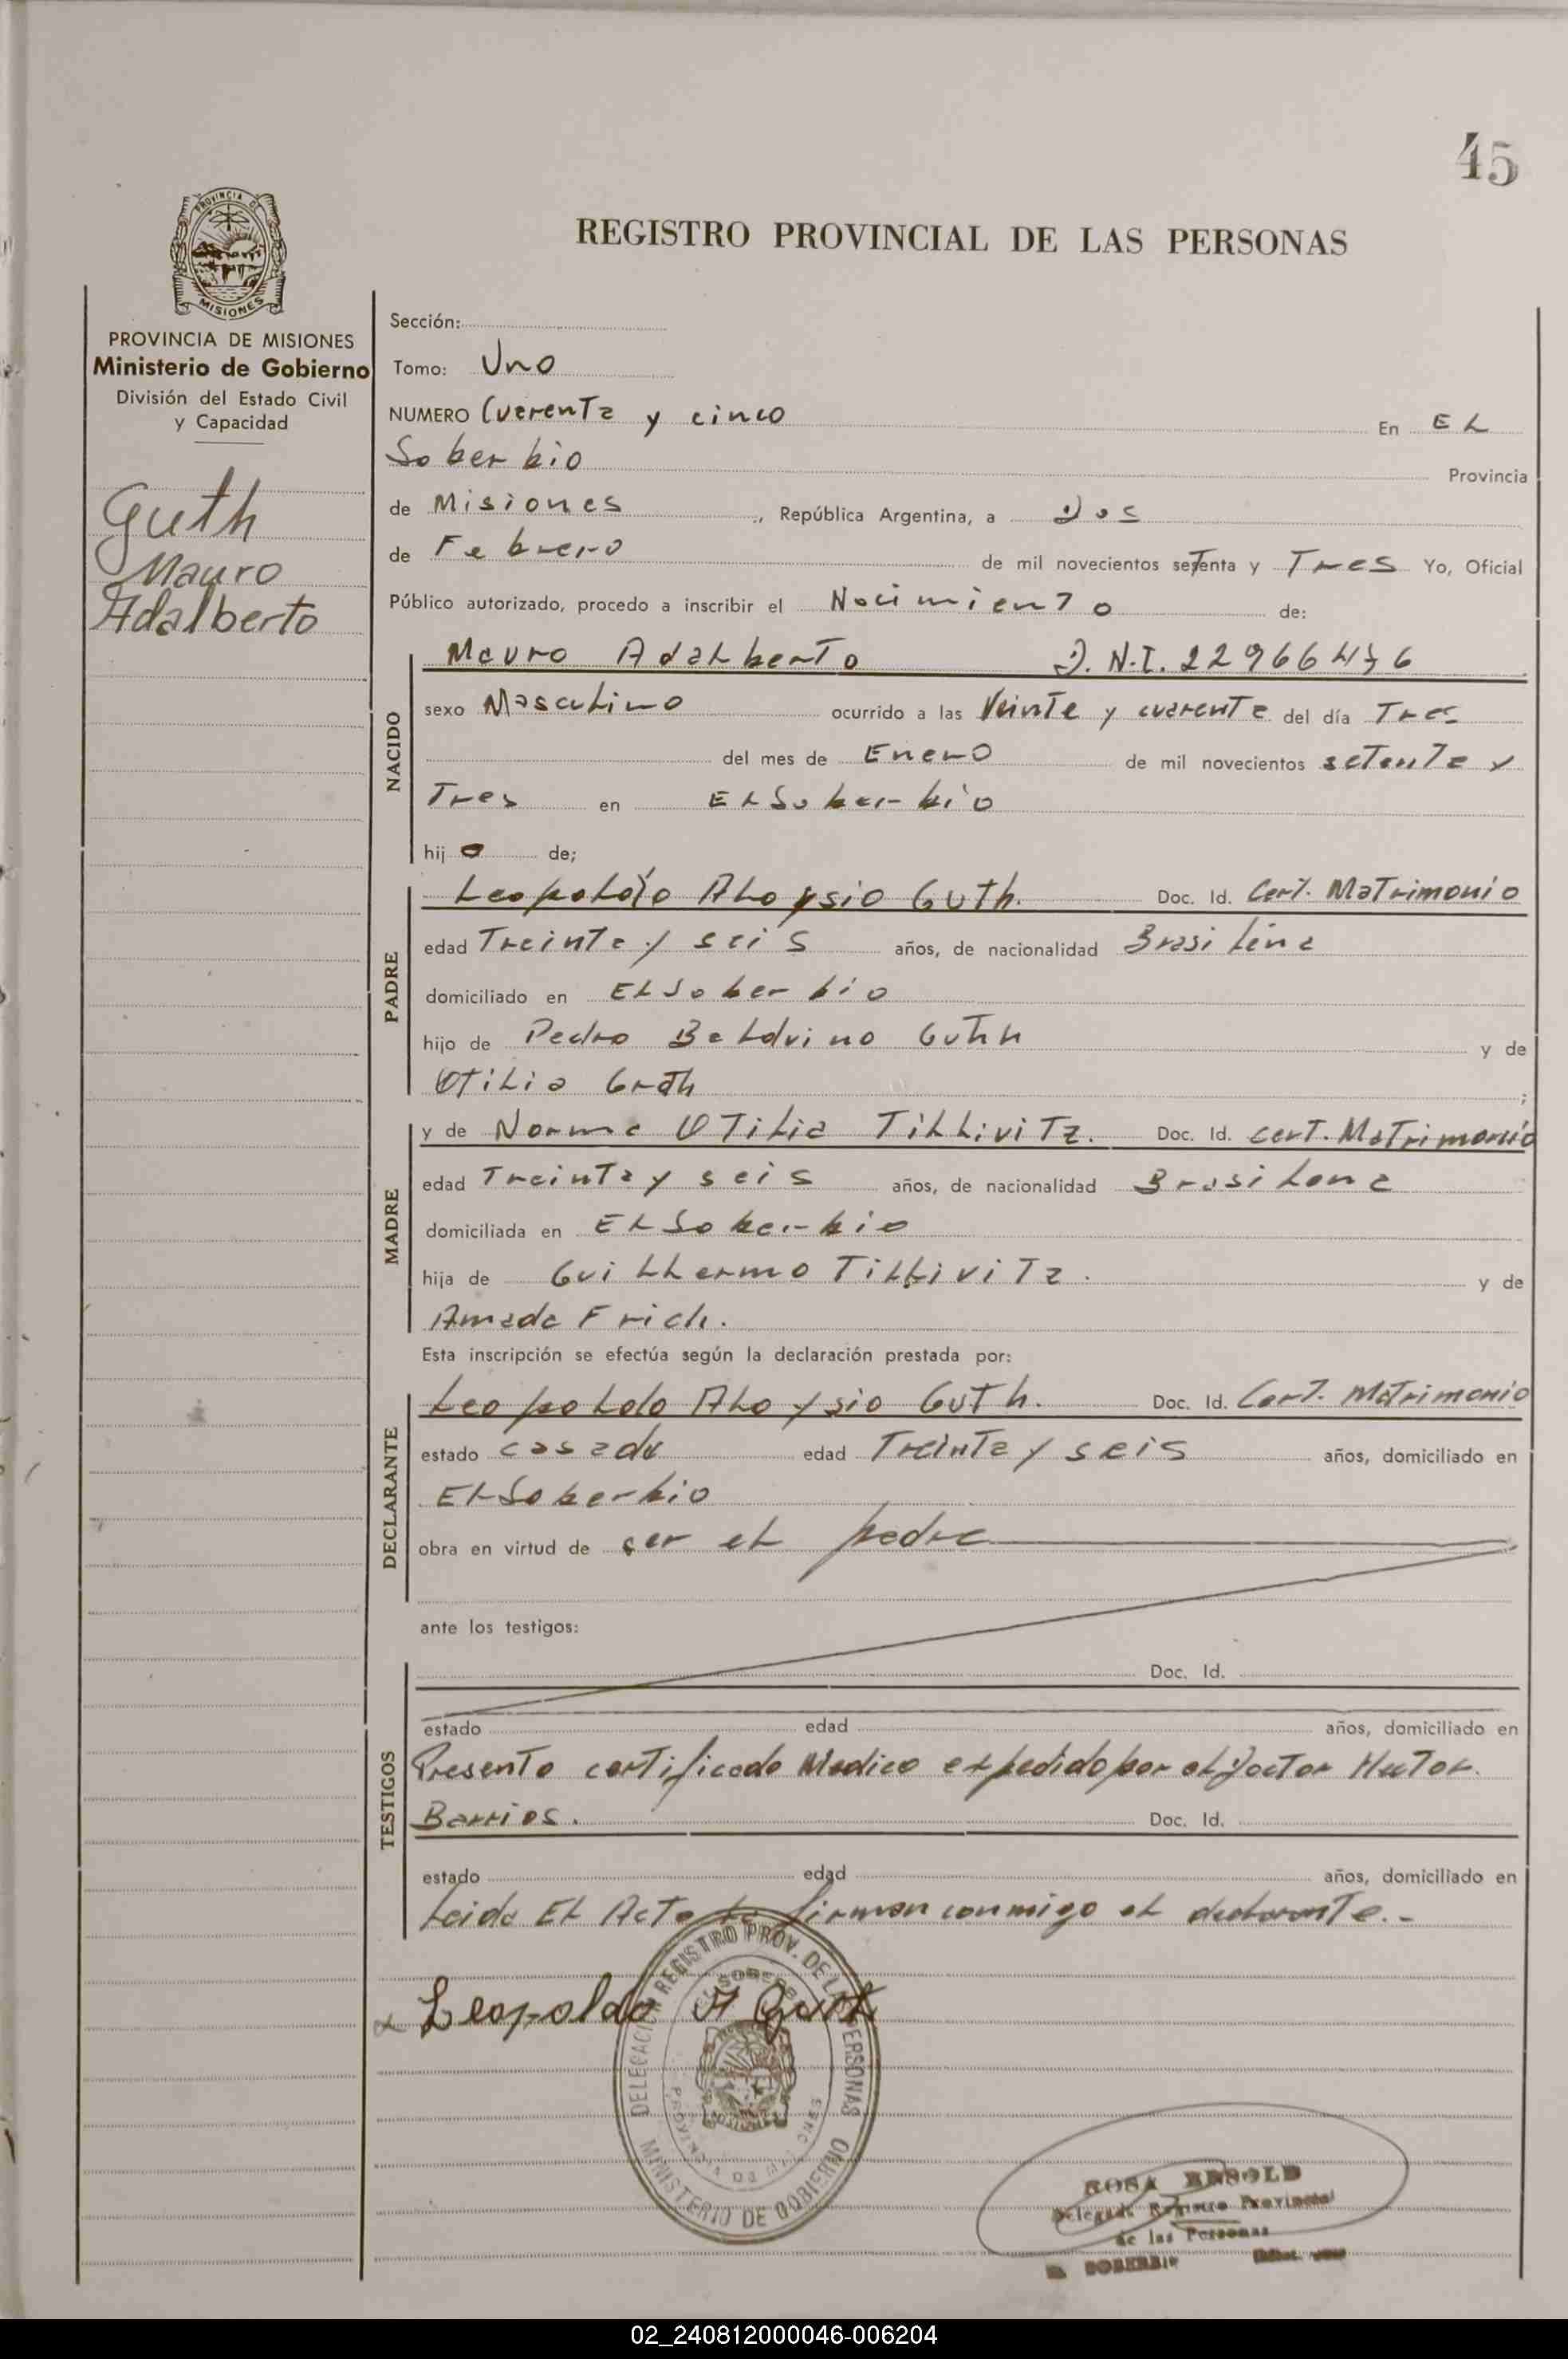 45
PROVINCIA DE
MISIONES
REGISTRO PROVINCIAL DE LAS PERSONAS
PROVINCIA DE MISIONES
Ministerio de Gobierno
División del Estado Civil
y Capacidad
Guth
Mauro
Adalberto
Sección:
Tomo: Uno
NUMERO Cuarenta y cinco En EL
Soberbio Provincia
de Misiones, República Argentina, a Dos
de Febrero de mil novecientos setenta y Tres Yo, Oficial
Público autorizado, procedo a inscribir el Nacimiento de:
NACIDO
Mauro Adalberto D.N.I. 22966476
sexo Masculino ocurrido a las Veinte y cuarenta del día Tres
del mes de Enero de mil novecientos setenta y
Tres en El Soberbio
hijo de;
PADRE
Leopoldo Aloysio Guth. Doc. Id. Cert. Matrimonio
edad Treinta y seis años, de nacionalidad Brasilena
domiciliado en El Soberbio
hijo de Pedro Baldvino Guth y de
Otilia ;
MADRE
y de Norma Otilia Tillivitz. Doc. Id. cert. Matrimonio
edad Treinta y seis años, de nacionalidad Brasilena
domiciliada en El Soberbio
hija de Guillermo Tillivitz. y de
Amada Frich.
Esta inscripción se efectúa según la declaración prestada por:
DECLARANTE
Leopoldo Aloysio Guth. Doc. Id. Cert. Matrimonio
estado casado edad Treinta y seis años, domiciliado en
El Soberbio
obra en virtud de ser el padre
ante los testigos:
TESTIGOS
Doc. Id.
estado edad años, domiciliado en
Presento certificado Medico expedido por el Doctor
Barrios. Doc. Id.
estado edad años, domiciliado en
Leida El Acta la firman conmigo el declarante.-
Leopoldo A Guth
DELEGACION REGISTRO PROV. DE LAS PERSONAS
EL SOBERBIO
PROVINCIA DE MISIONES
MINISTERIO DE GOBIERNO
ROSA
Delegada Registro Provincial
de las Personas
SOBERBIO
02_240812000046-006204